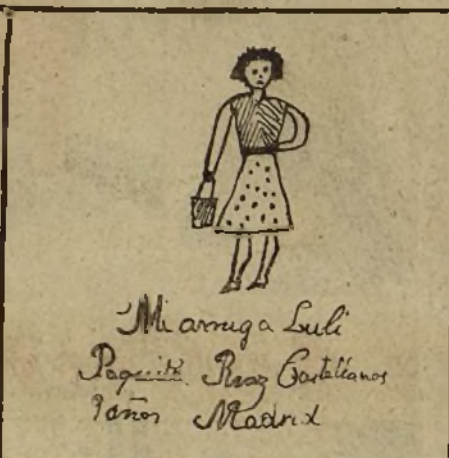 Mi amiga Luli
Paquita Ruiz Castellanos
9 años Madrid